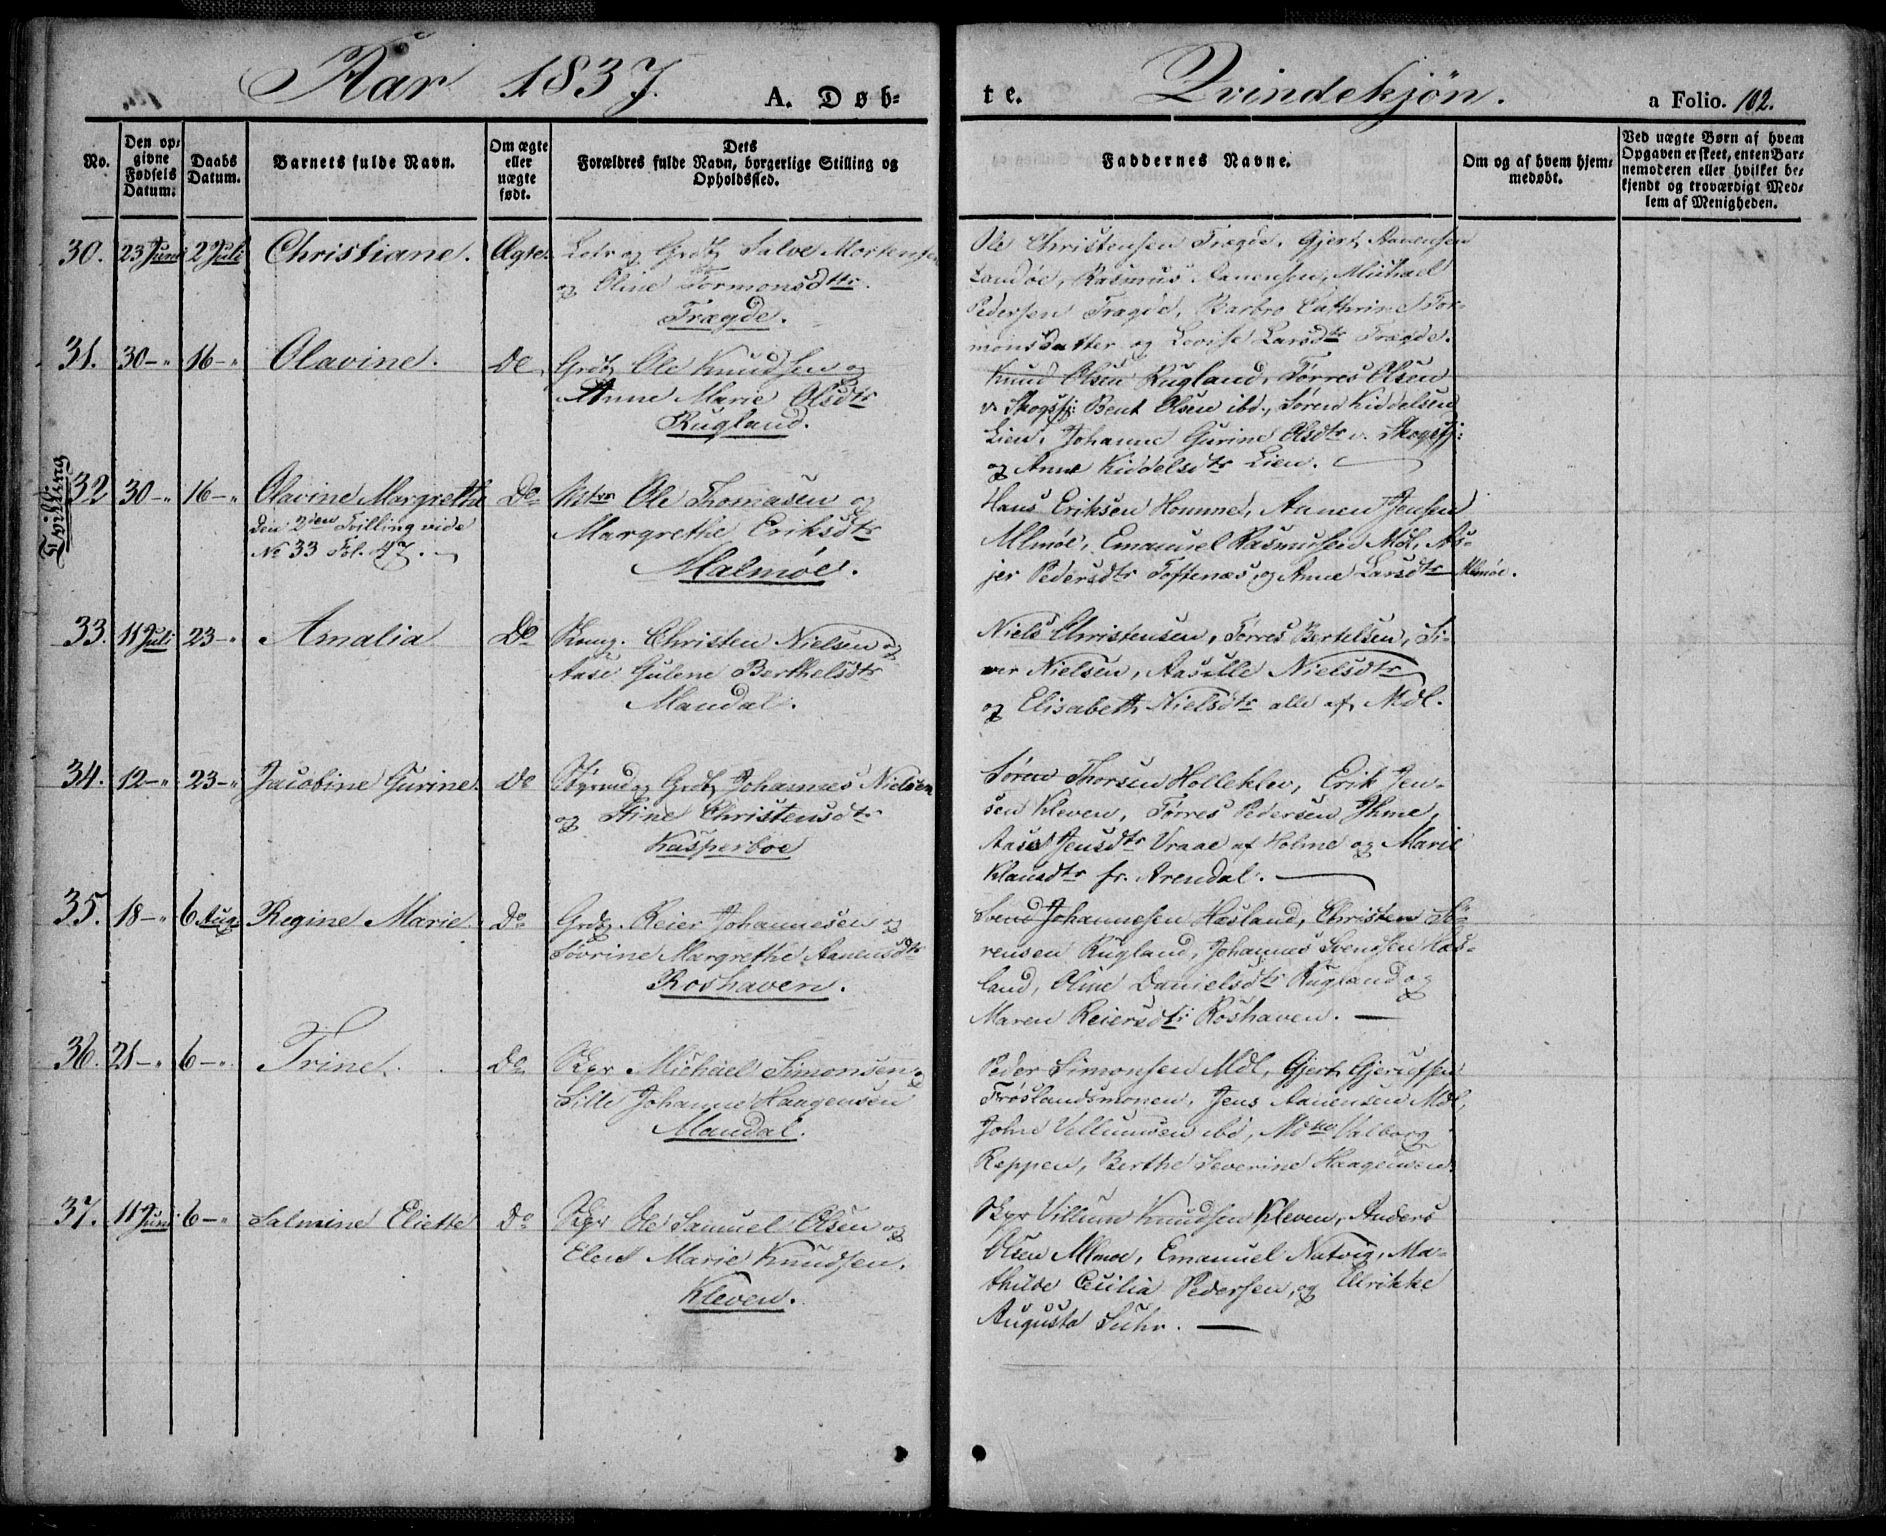 Aar 1837.
A. Døb-
te.
Qvindekjøn.
a Folio. 102.
No.
Den op-
givne
Fødsels
Datum.
Daabs
Datum.
Barnets fulde Navn.
Om ægte
eller
uægte
født.
Dets
Forældres fulde Navn, borgerlige Stilling og
Opholdssted.
Faddernes Navne.
Om og af hvem hjem-
medøbt.
Ved uægte Børn af hvem
Opgaven er skeet, enten Bar-
nemoderen eller hvilket be-
kjendt og troværdigt Med-
lem af Menigheden.
30. 23 Juni 2 Juli Christiane. Ægte. Lots og Grdbr Salve Mortensen
og Oline Tormonsdtr.
Trægde.
Ole Christensen Trægde, Gjert Aanensen
Landøe, Rasmus Aanensen, Michael
Pedersen Trægde, Barbro Cathrine Tor-
monsdatter og Lovise Larsdtr Trægde.
31. 30 - " 16 - " Olavine. Do Grdbr Ole Knudsen og
Anne Marie Olsdtr
Rugland.
Knud Olsen Rugland, Tørres Olsen
v. Skogsfj: Bent Olsen ibd., Søren Kiddelsen
Lien, Johanne Gurine Olsdtr v. Skogsfj:
og Anne Kiddelsdtr Lien.
Tvilling
32 30 - " 16 - " Olavine Margrethe Do Mstrm Ole Thomasen og
Den 2den Tvilling vide
No 33 Fol. 47.
Margrethe Eriksdtr
Malmøe.
Hans Eriksen Homme, Aanen Jensen
Mlmøe, Emanuel Rasmussen Mdl, As-
jer Pedersdtr Toftenæs, og Anne Larsdtr Mlmøe.
33. 11 Juli 23 - " Amalia Do Christen Nielsen og
Aase Gulene Berthelsdtr
Mandal.
Niels Christensen, Tørres Bertelsen, Si-
ver Nielsen, Aasille Nielsdtr
og Elisabeth Nielsdtr alle af Mdl.
34. 12 - " 23 - " Jacobine Gurine. Do Styrmd og Grdbr Johannes Nielsen
og Stine Christensdtr
Kasperboe
Søren Thorsen Holleklev, Erik Jen-
sen Kleven, Tørres Pedersen Ihme,
Aase Jensdtr Vraae af Holme og Marie
Klausdtr fr. Arendal.
35. 18 - " 6 Aug Regine Marie. Do Grdbr. Reier Johannesen og
Sovrine Margrethe Aanensdtr
Roshaven.
Svend Johannesen Hæsland, Christen Sø-
rensen Rugland, Johannes Svendsen Hæs-
land, Oline Danielsdtr Rugland og
Maren Reiersdtr Roshaven.
36. 21 - " 6 - " Trine. Do Skpr Michael Simonsen og
Sille Johanne Haagensen
Mandal.
Peder Simonsen Mdl, Gjert Gjerufsen
Frøslandsmonen, Jens Aanensen Mdl,
John Villumsen ibd, Valborg
Reppen, Berthe Severine Haagensen
37. 11 Juni 6 - " Salmine Eliette Do Skpr Ole Samuel Olsen og
Elen Marie Knudsen.
Kleven.
Skpr Villum Knudsen Kleven, Anders
Olsen Mlmøe, Emanuel Natvig, Ma-
thilde Cecilia Pedersen, og Ulrikke
Augusta Suhr.